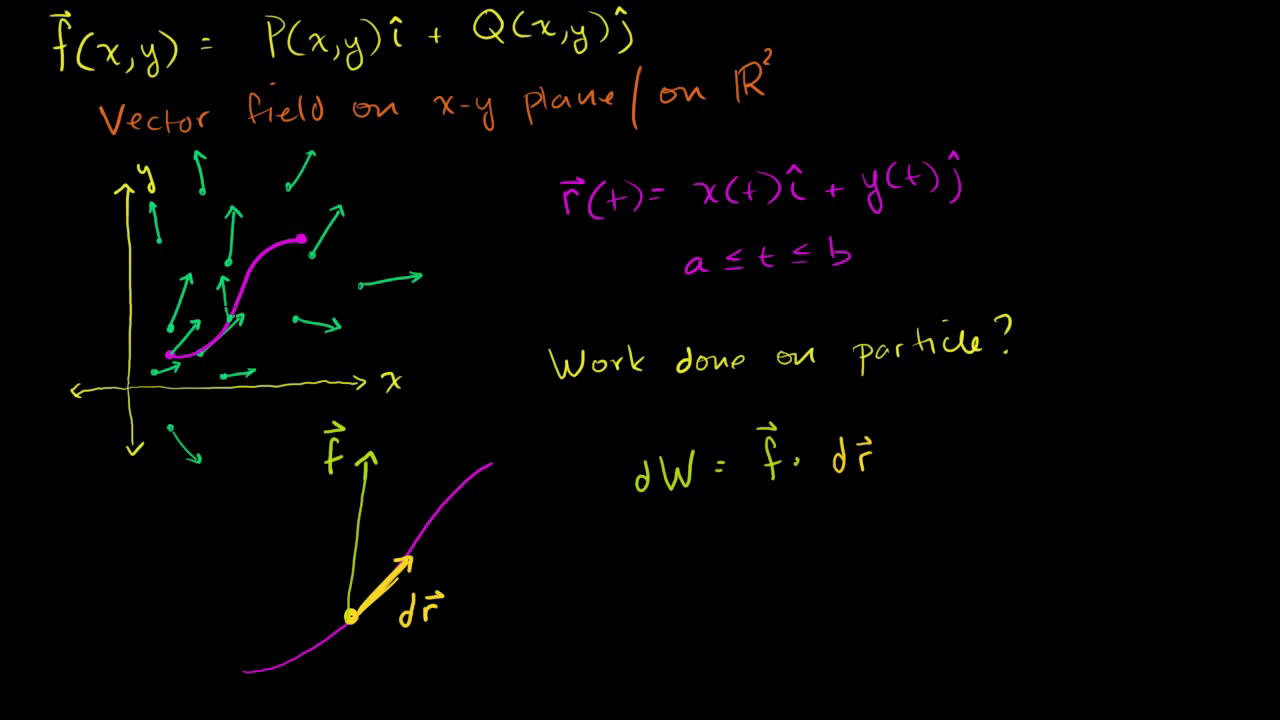 f⃗(x,y) = P(x,y)î + Q(x,y)ĵ
Vector field on x-y plane / on ℝ²
y
r⃗(t) = x(t)î + y(t)ĵ
a ≤ t ≤ b
Work done on particle?
x
f⃗
dW = f⃗ · dr⃗
dr⃗